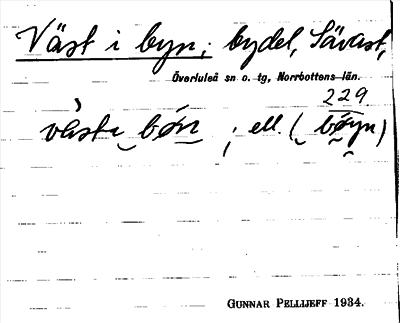 Väst i byn; bydel, Sävast,
Överluleå sn o. tg, Norrbottens län.
229
västa bøn ; ell. (bøyn)
GUNNAR PELLIJEFF 1934.